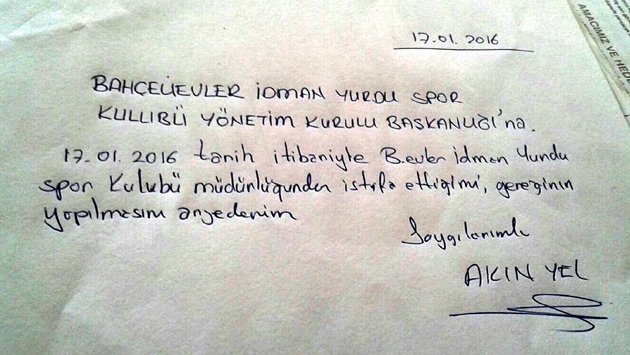 AMACIMIZ VE HEDE
17.01.2016
BAHÇELİEVLER İDMAN YURDU SPOR
KULÜBÜ YÖNETİM KURULU BAŞKANLIĞI'na.
17.01.2016 tarih itibariyle B.evler İdman Yurdu
spor Kulubü müdürlüğünden istifa ettiğimi, gereğinin
yapılmasını arzederim
Saygılarımla
AKIN YEL